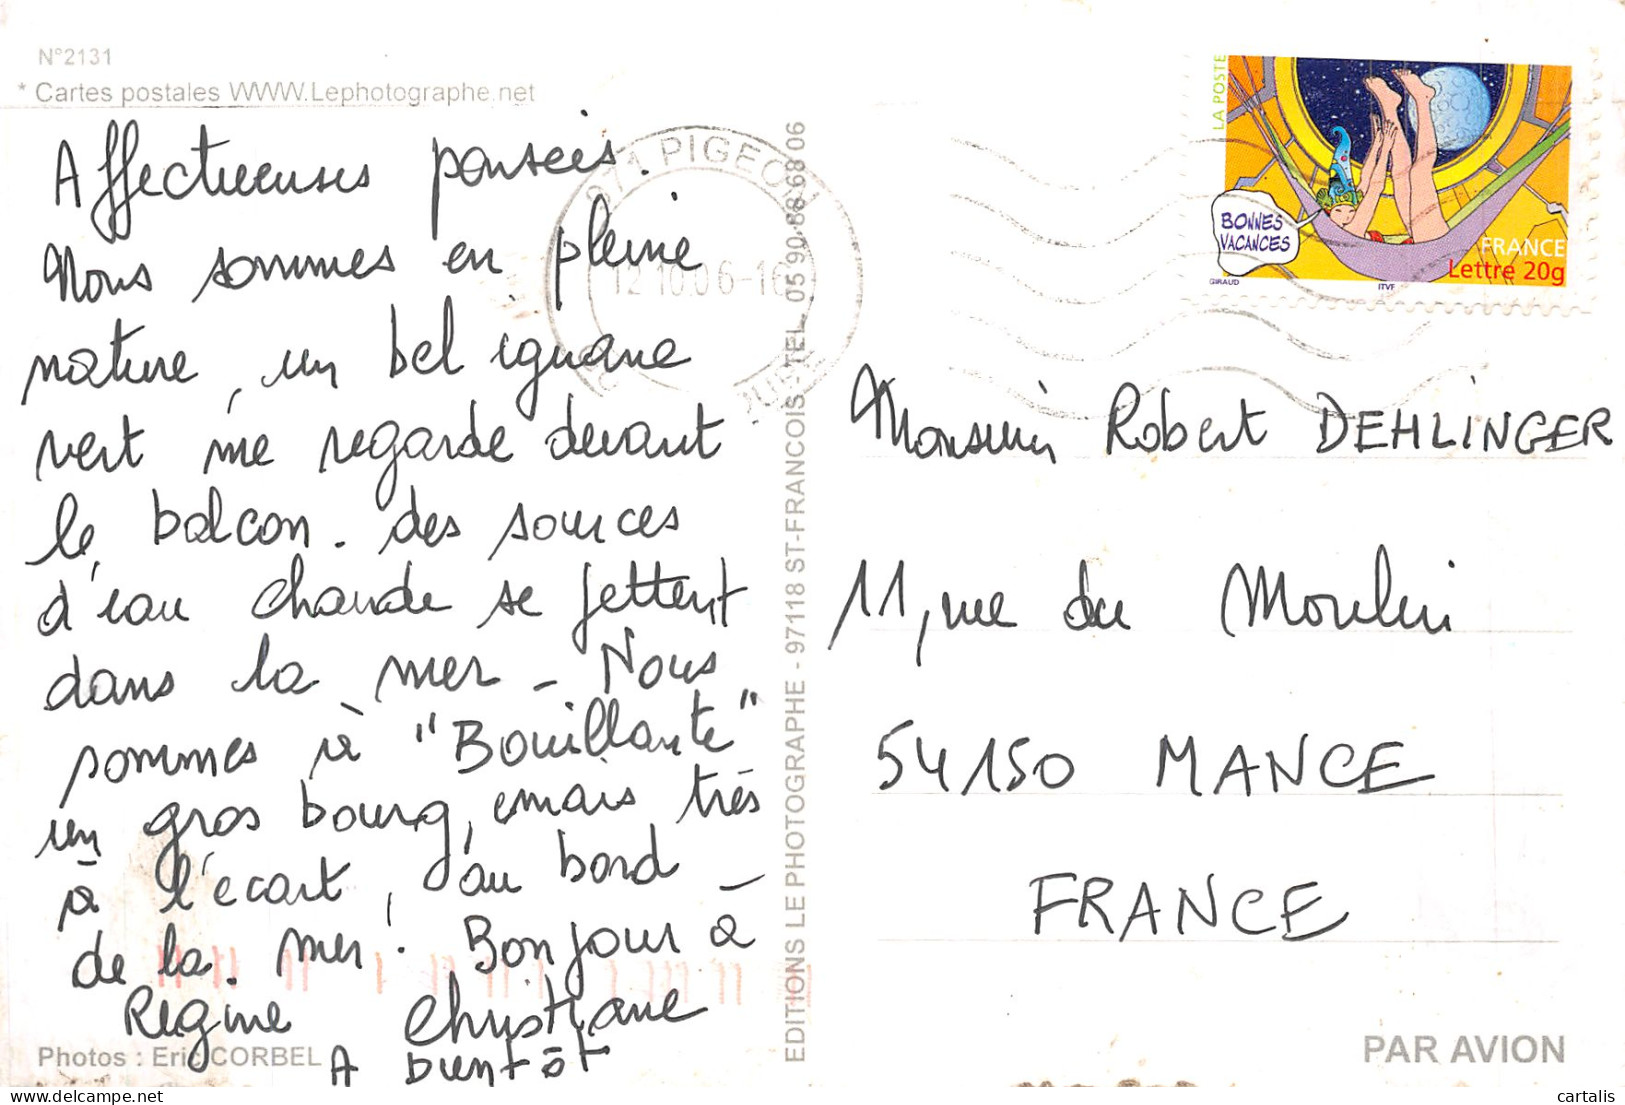 N°2131
* Cartes postales WWW.Lephotographe.net
Affectueuses pensées.
Nous sommes en pleine
nature, un bel iguane
vert me regarde devant
le balcon. des sources
d'eau chaude se jettent
dans la mer - Nous
sommes à "Bouillante"
un gros bourg, mais très
à l'écart, au bord -
de la mer. Bonjour à
Régine Christiane
A bientôt
Photos : Eric CORBEL
EDITIONS LE PHOTOGRAPHE - 97118 ST-FRANCOIS - TEL. 05 90 88 68 06
971 PIGEON
12 10 06-16
LA POSTE
BONNES
VACANCES
FRANCE
Lettre 20g
GIRAUD ITVF
Monsieur Robert DEHLINGER
11, rue du Moulin
54150 MANCE
FRANCE
PAR AVION
cartalis